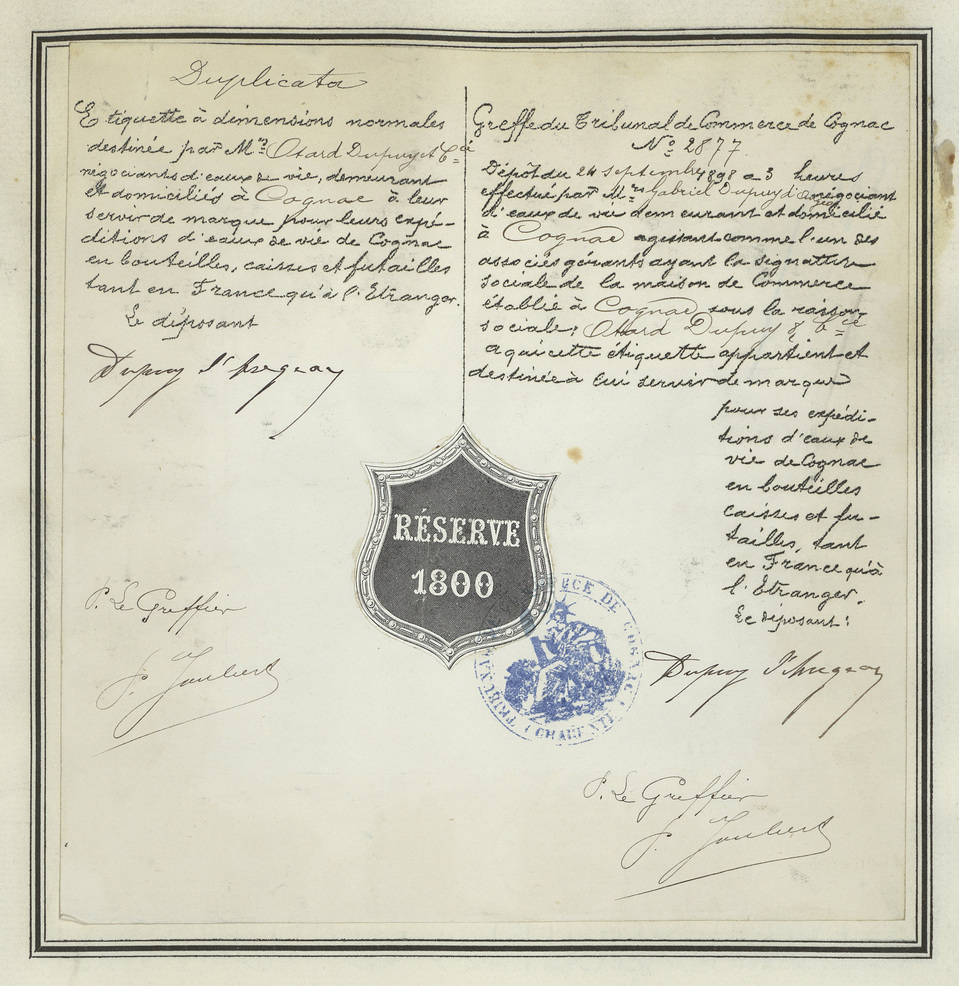 Duplicata
Etiquette à dimensions normales
destinée par Mrs Otard Dupuy et Cie
négociants d'eaux de vie, demeurant
et domiciliés à Cognac à leur
servir de marque pour leurs expé-
ditions d'eaux de vie de Cognac
en bouteilles, caisses et futailles
tant en France qu'à l'Etranger.
Le déposant
Dupuy d'Angeac
P. Le Greffier
J. Joubert
Greffe du Tribunal de Commerce de Cognac
No 2877
Dépôt du 24 septembre 1898 à 3 heures
effectué par Mr Gabriel Dupuy d'Angeac négociant
d'eaux de vie demeurant et domicilié
à Cognac agissant comme l'un des
associés gérants ayant la signature
sociale de la maison de Commerce
établie à Cognac sous la raison
sociale: Otard Dupuy & Cie
a qui cette étiquette appartient et
destinée à lui servir de marque
pour ses expédi-
tions d'eaux de
vie de Cognac
en bouteilles
caisses et fu-
tailles, tant
en France qu'à
l'Etranger.
Le déposant:
Dupuy d'Angeac
RÉSERVE
1800
TRIBUNAL DE COMMERCE DE COGNAC
(CHARENTE)
P. Le Greffier
J. Joubert